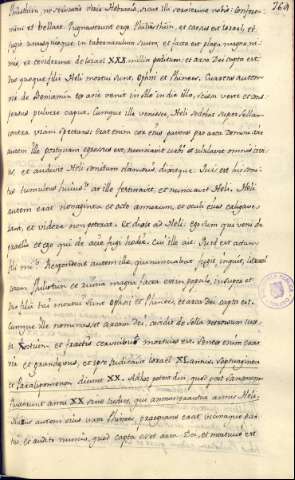 264
Philistiim, ne serviatis vivis Hebraeis, sicut illi servierunt vobis: Confor-
mini et bellate. Pugnaverunt ergo Philisthiim, et caesus est Israel, et
fugit unusquisque in tabernaculum suum, et facta est plaga magna ni-
mis, et ceciderunt de Israel XXX millia peditum, et arca Dei capta est
duo quoque filii Heli mortui sunt, Ophni et Phinees. Currens autem
vir de Beniamin ex acie venit in Silo in die illo, scissa veste et con-
spersus pulvere caput. Cumque ille venisset, Heli sedebat super sellam
contra viam spectans: erat enim cor eius pavens pro arca Domini. Vir
autem ille postquam ingressus est, nunciavit urbi et ululavit omnis civi-
tas, et audivit Heli sonitum clamoris, dixitque. Quis est hic soni-
tus tumultus huius? at ille festinavit, et nunciavit Heli. Heli
autem erat nonaginta et octo annorum, et oculi eius caligave-
rant, et videre non poterat. Et dixit ad Heli: ego sum qui veni de
praelio et ego qui de acie fugi hodie. Cui ille ait. Quid est actum
fili mi? Respondens autem ille, qui nunciabat, fugit, inquit, Israel
coram Philistiim et ruina magna facta est in populo, insuper et
duo filii tui mortui sunt Ophni et Phinees, et arca Dei capta est.
Cumque ille nominasset arcam Dei, cecidit de sella retrorsum iux-
ta ostium, et fractis cervicibus mortuus est. Senex enim erat
vir et grandaevus, et ipse iudicavit Israel XL annis. Septuaginta
et Paralipomenon dicunt XX. Adhoc potest dici, quod post Sampsonem
fluxerunt anni XX sine iudice, qui annumerantur annis Heli.
Nurus autem eius uxor Phinees, praegnans erat, vicinaque par-
tui, et audito nuncio, quod capta esset arca Dei, et mortuus est